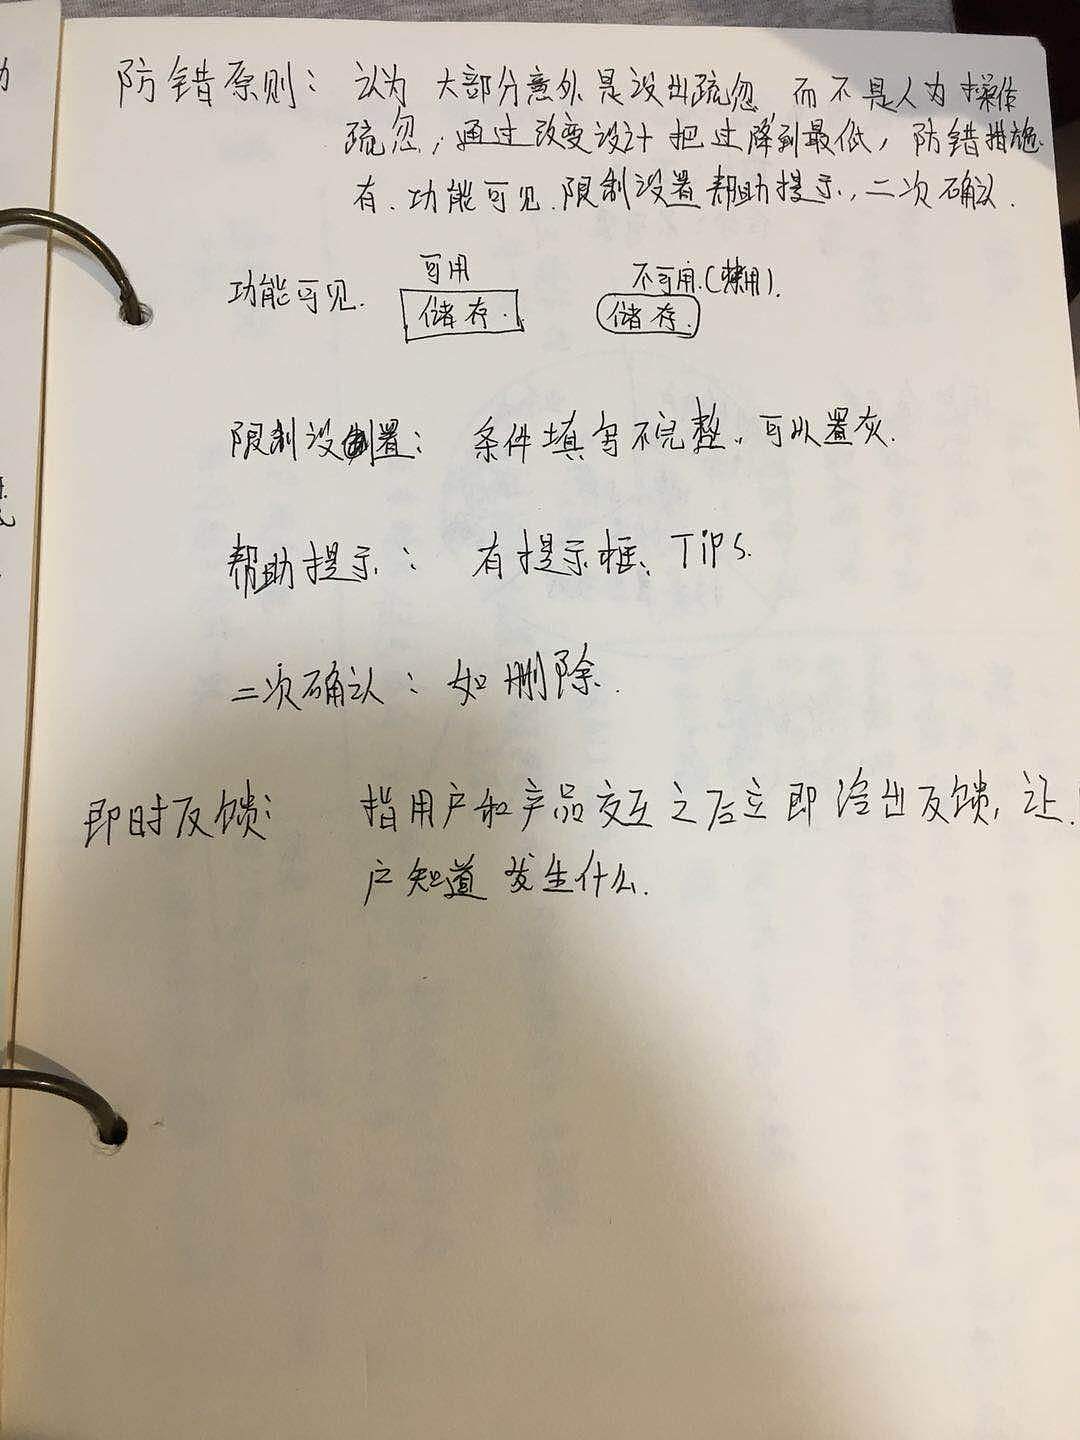 防错原则：认为大部分意外是设出疏忽，而不是人为操作
疏忽，通过改变设计把过降到最低，防错措施
有、功能可见、限制设置、帮助提示、二次确认.
可用 不可用.(禁用).
功能可见. 储存. 储存.
限制设置：条件填写不完整，可以置灰.
帮助提示：有提示框、TiPS.
二次确认：如删除.
即时反馈：指用户和产品交互之后立即给出反馈，让
户知道发生什么.